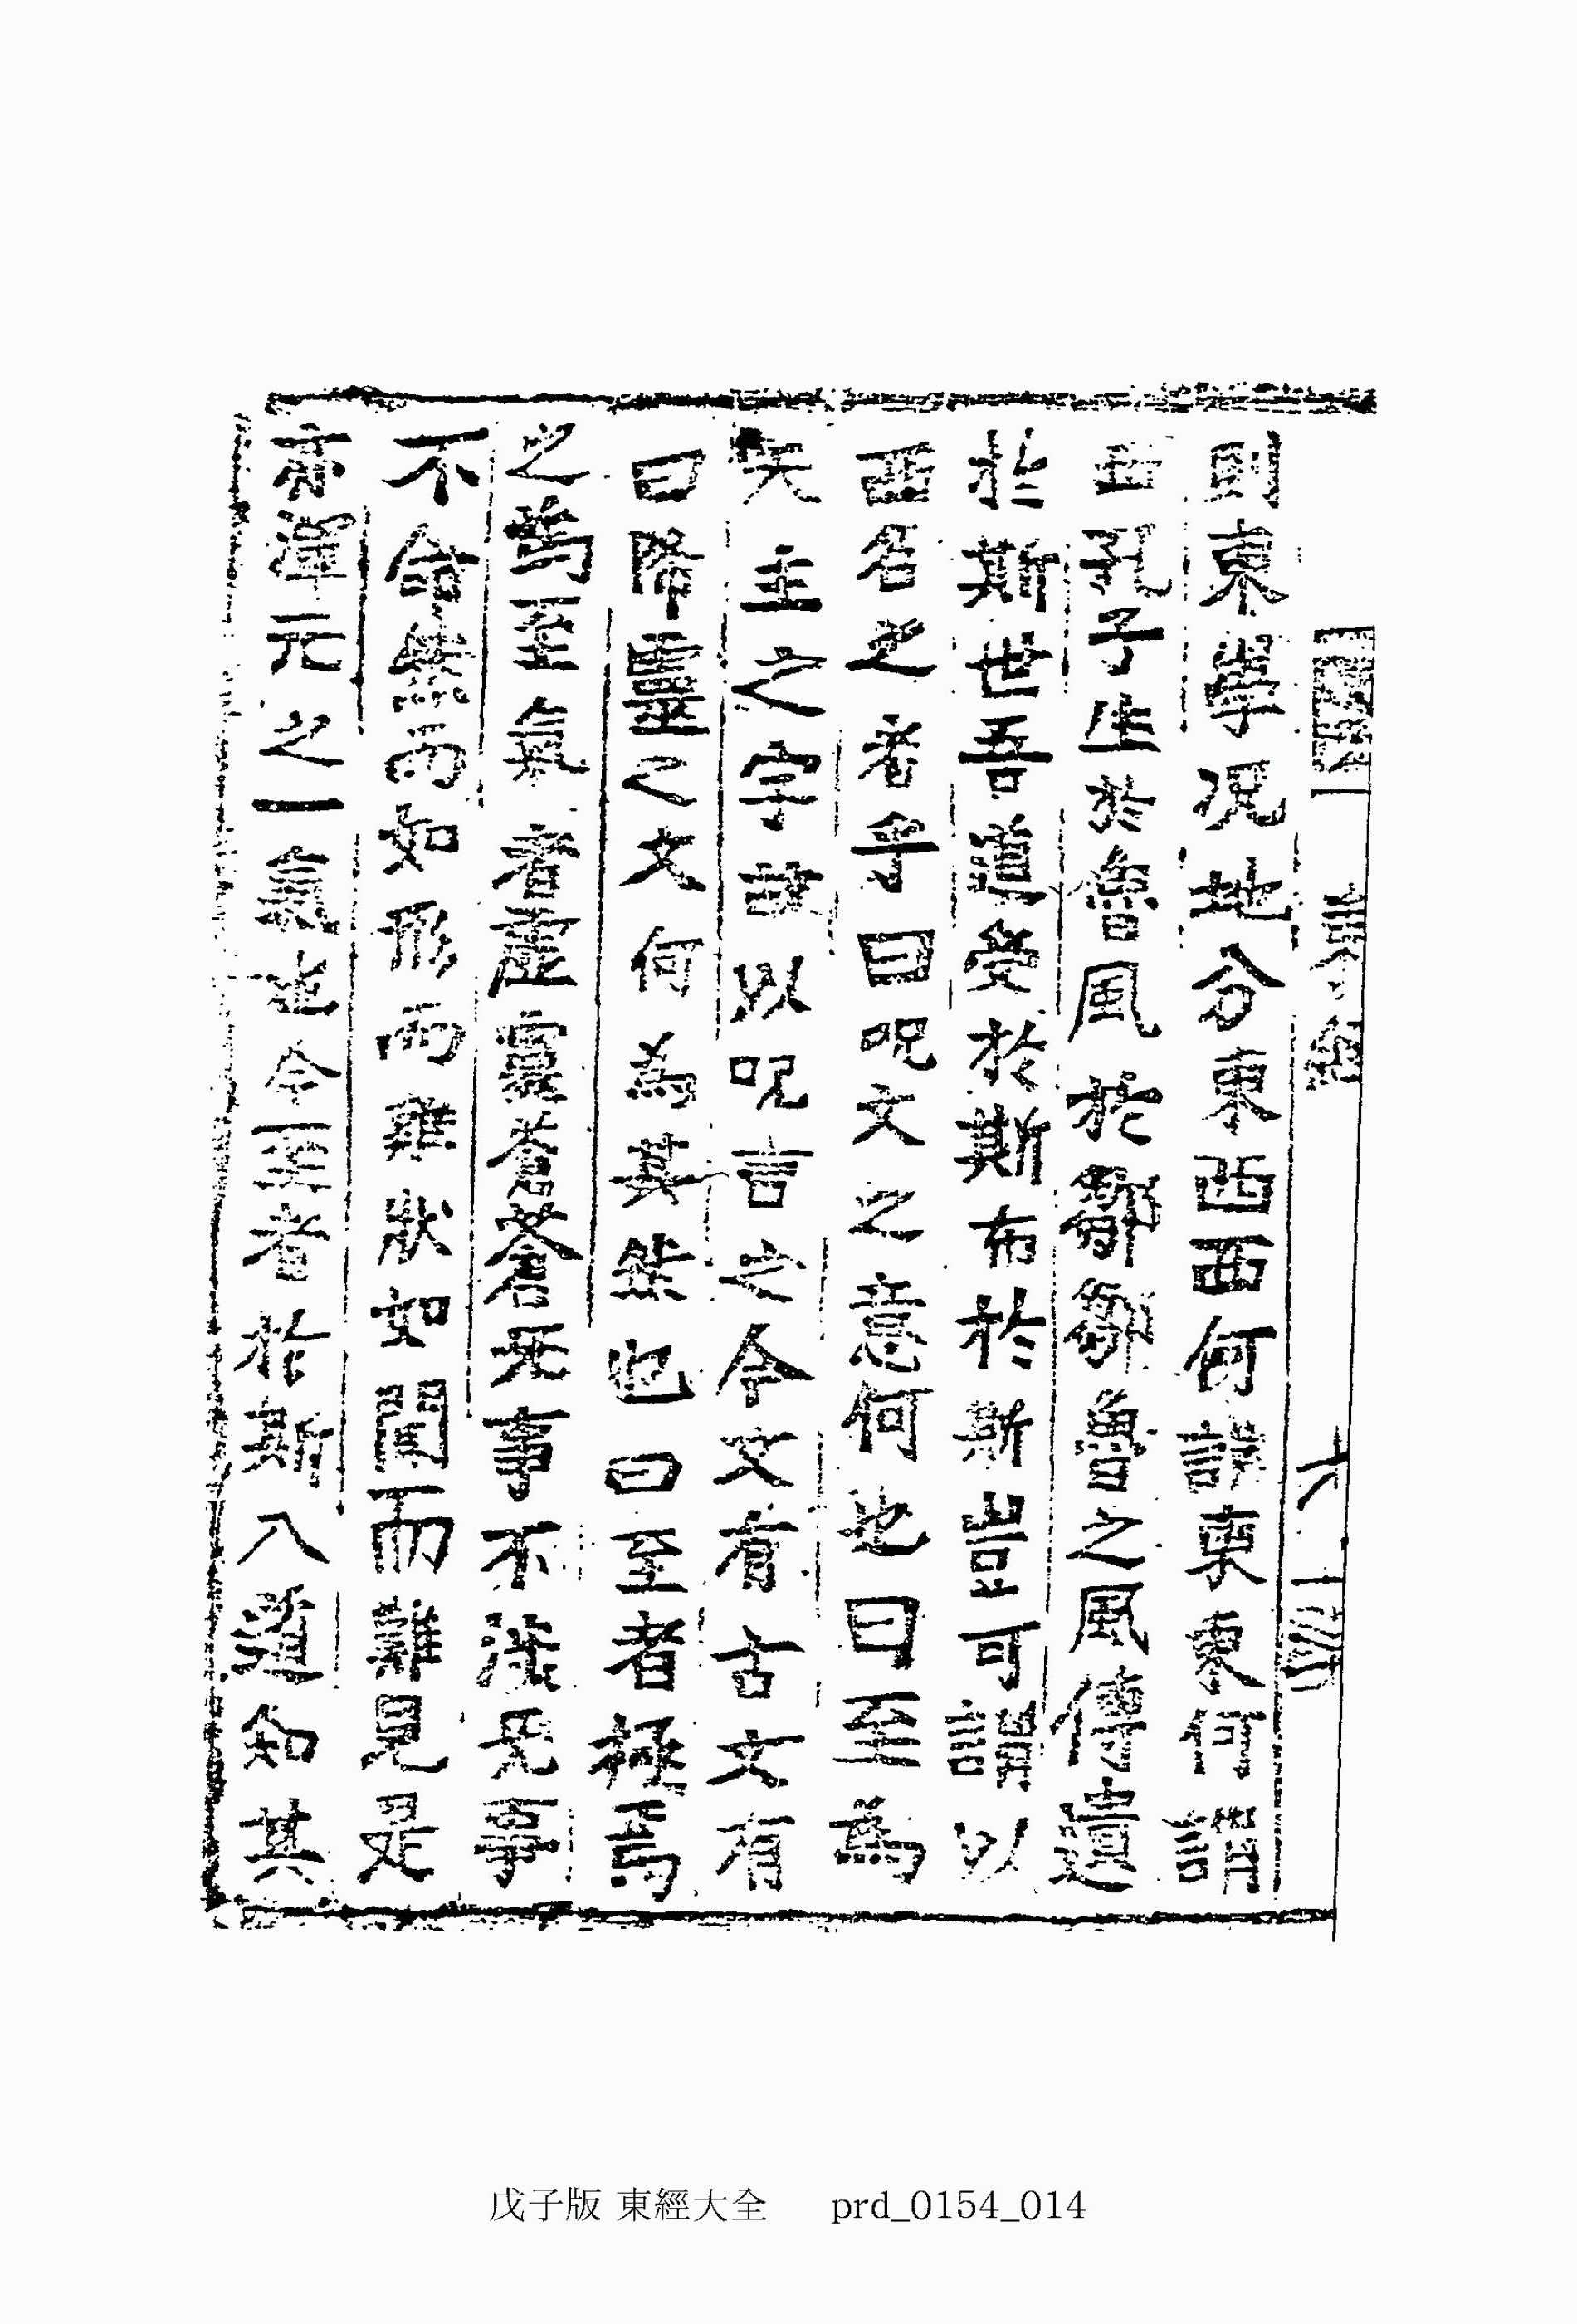 則東學況地分東西西何謂東東何謂
西孔子生於魯風於鄒鄒魯之風傳遺
於斯世吾道受於斯布於斯豈可謂以
西名之者乎曰呪文之意何也曰至爲
天主之字故以呪言之今文有古文有
曰降靈之文何爲其然也曰至者極焉
之爲至氣者虛靈蒼蒼无事不涉无事
不命然而如形而難狀如聞而難見是
亦渾元之一氣也今至者於斯入道知其
東經
六
戊子版 東經大全 prd_0154_014